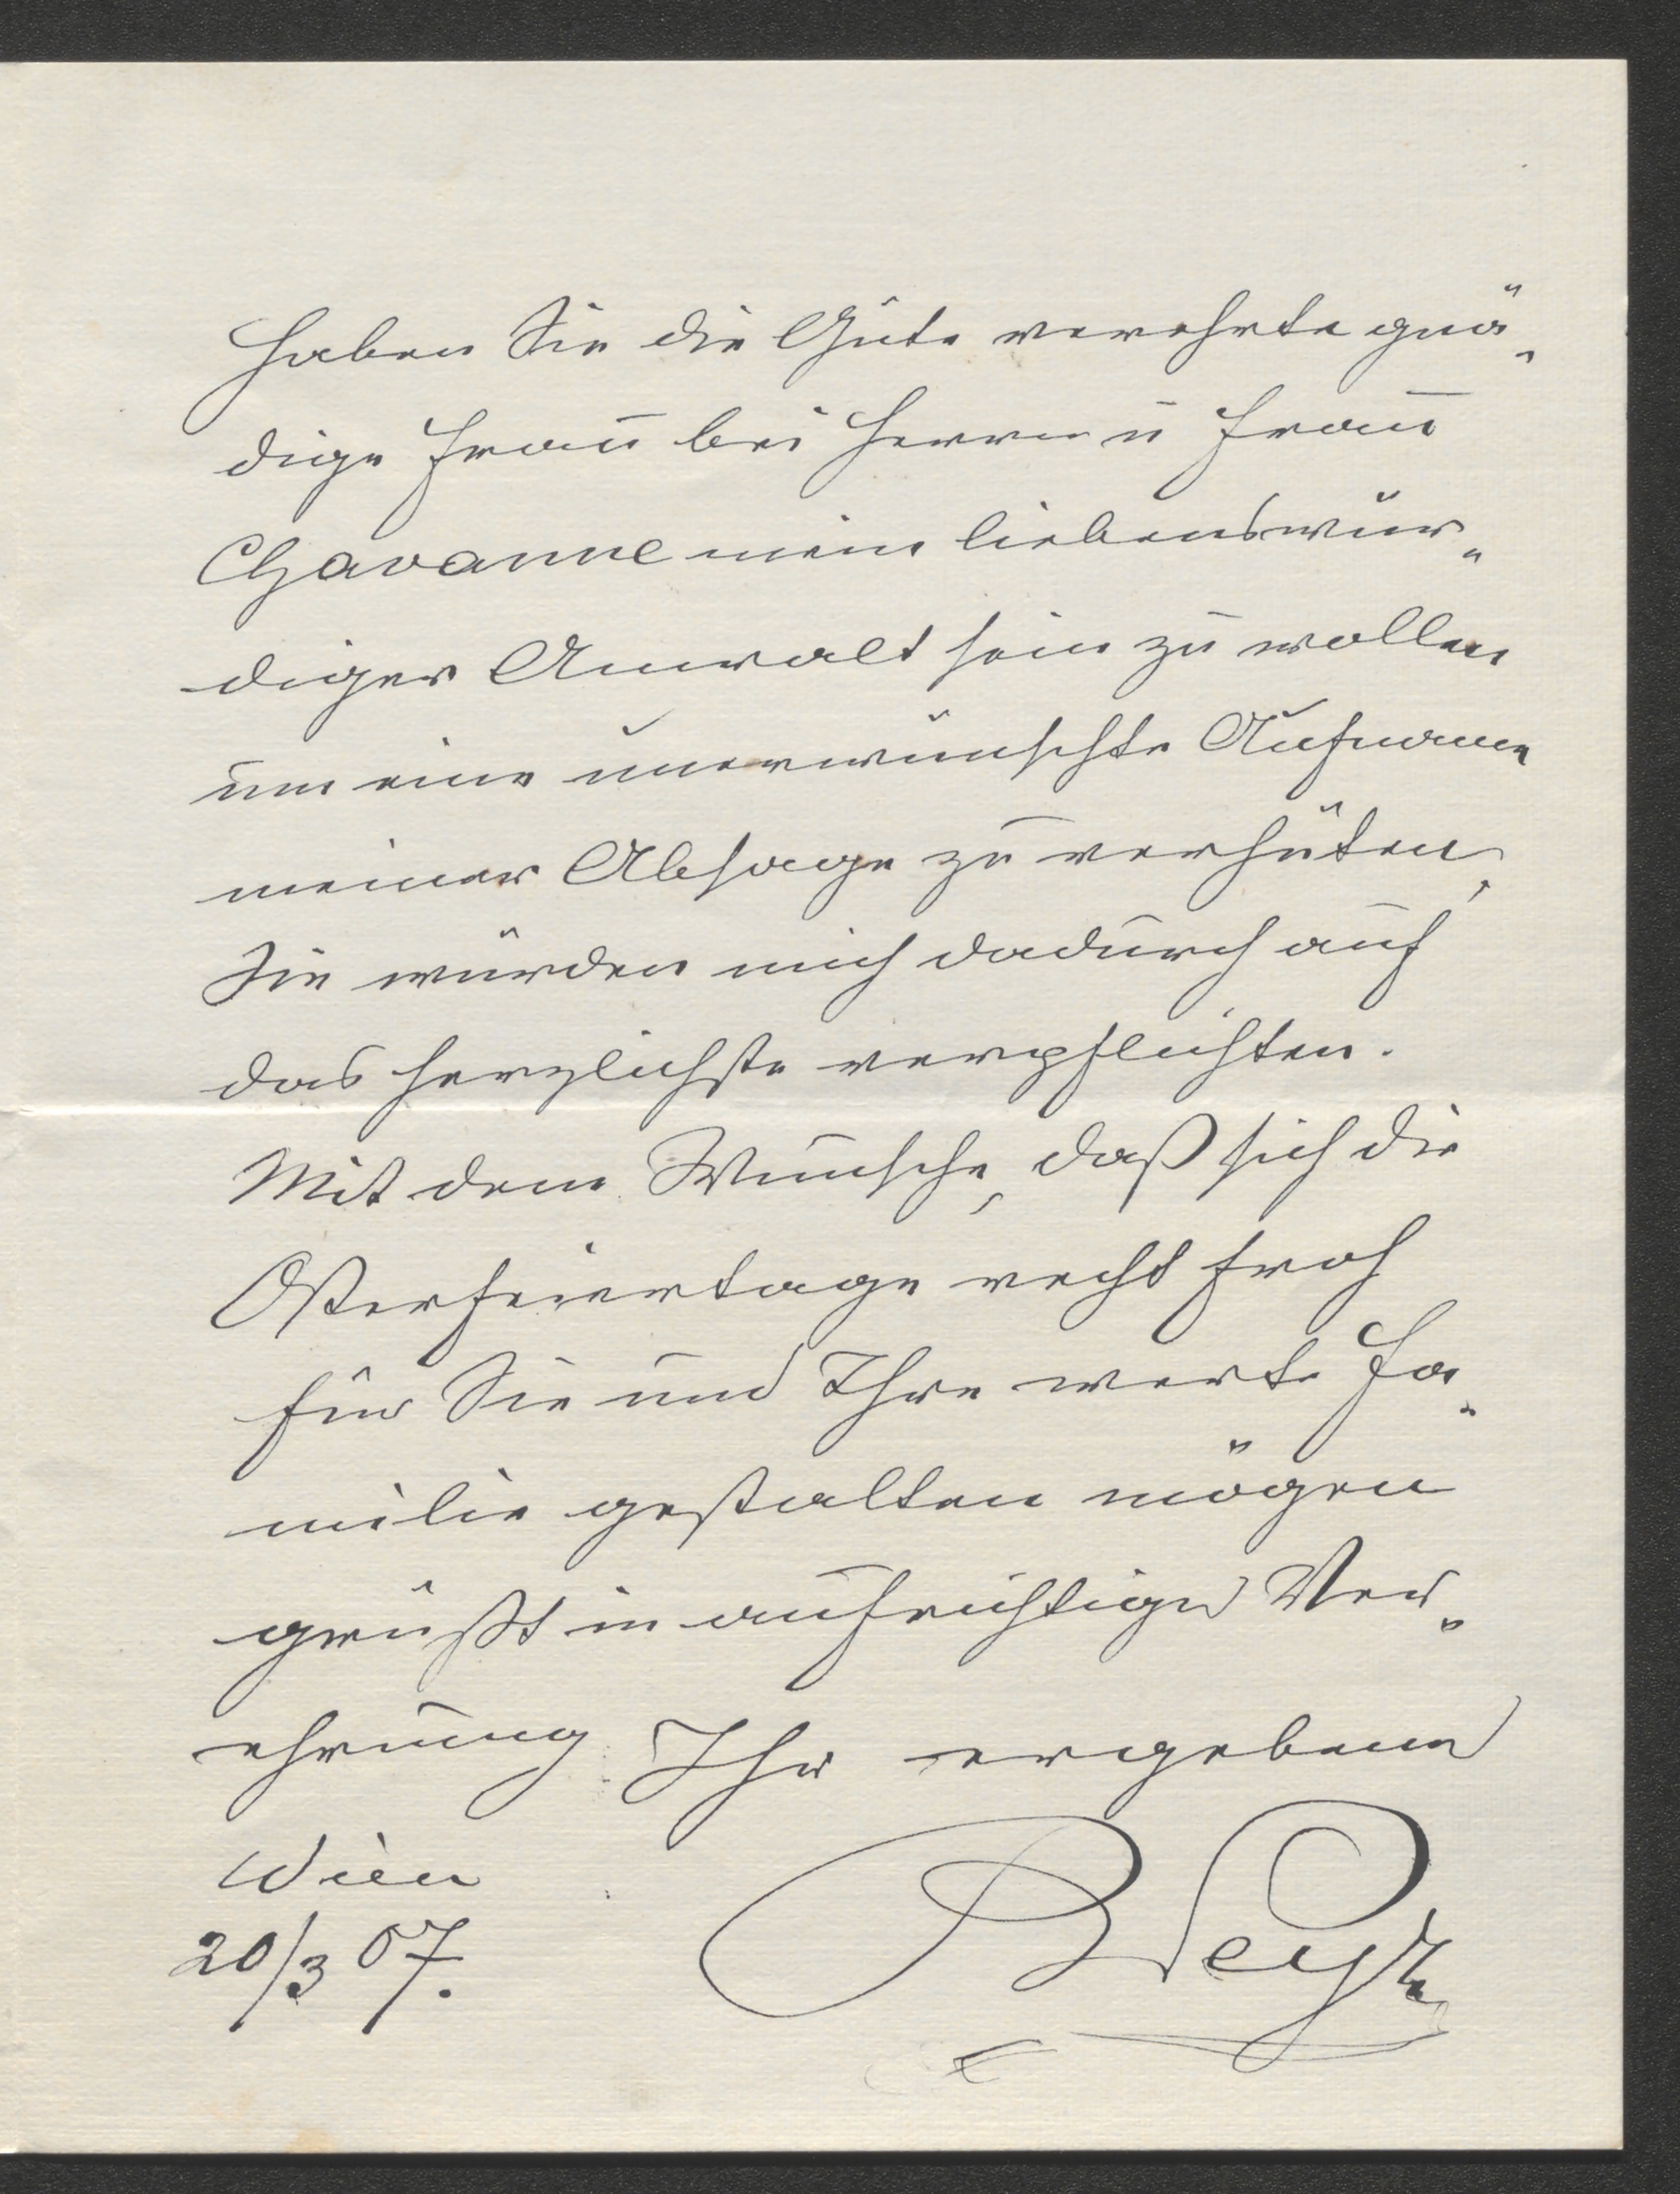 Haben Sie die Güte verehrte gnä„
dige Frau bei Herrn u Frau
Chavanne mein liebenswür„
diger Anwalt sein zu wollen
um eine unerwünschte Aufname
meiner Absage zu verhüten,
Sie würden mich dadurch auf
das herzlichste verpflichten.
Mit dem Wunsche, daß sich die
Osterfeiertage recht froh
für Sie und Ihre werte Fa„
milie gestalten mögen
grüßt in aufrichtiger Ver„
ehrung Ihr ergebener
Wien
20/3 07.